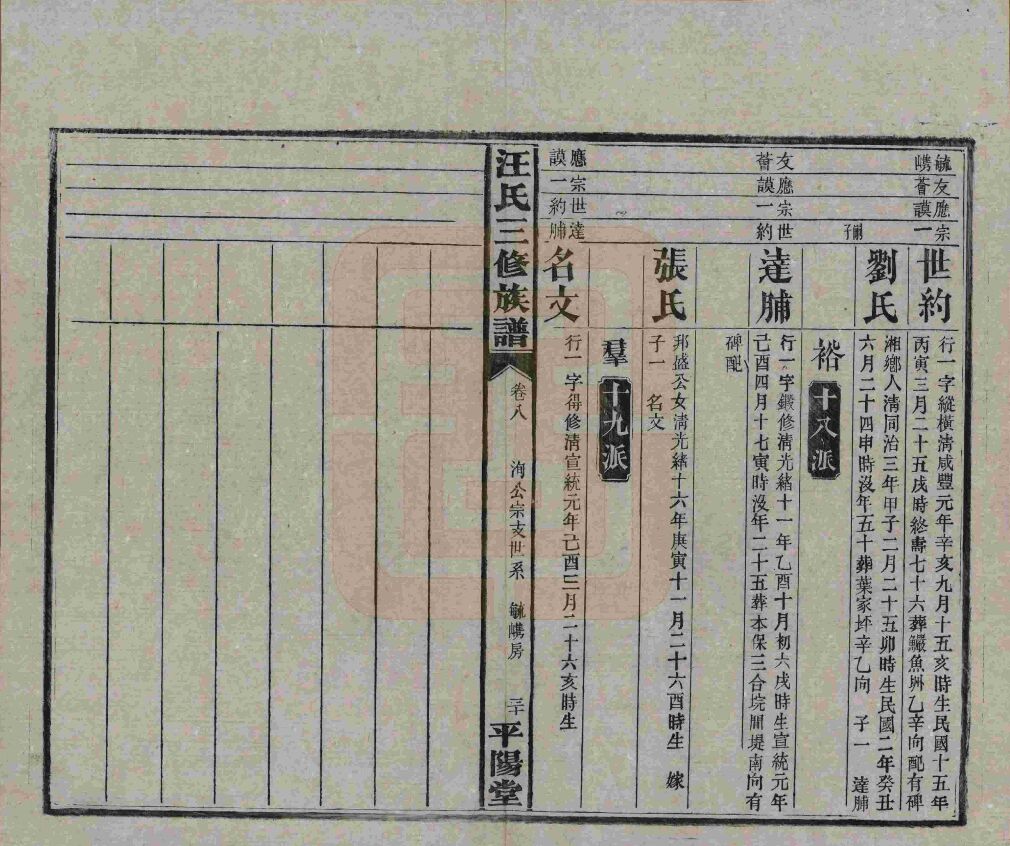 毓嶲
友薈
應謨
宗一
世約
行一字縱橫清咸豐元年辛亥九月十五亥時生民國十五年
丙寅三月二十五戌時終壽七十六葬鱺魚洲乙辛向配有碑
嗣子
劉氏
湘鄉人清同治三年甲子二月二十五卯時生民國二年癸丑
六月二十四申時沒年五十葬葉家坪辛乙向 子一 達脯
裕
十八派
友薈
應謨
宗一
世約
達脯
行一字鍛修清光緒十一年乙酉十月初六戌時生宣統元年
己酉四月十七寅時沒年二十五葬本保三合垸間堤南向有
碑配
張氏
邦盛公女清光緒十六年庚寅十一月二十六酉時生 嫁
子一 名文
羣
十九派
應謨
宗一
世約
達脯
名文
行一字得修清宣統元年己酉三月二十六亥時生
汪氏三修族譜
卷八
洵公宗支世系
毓嶲房
三十
平陽堂